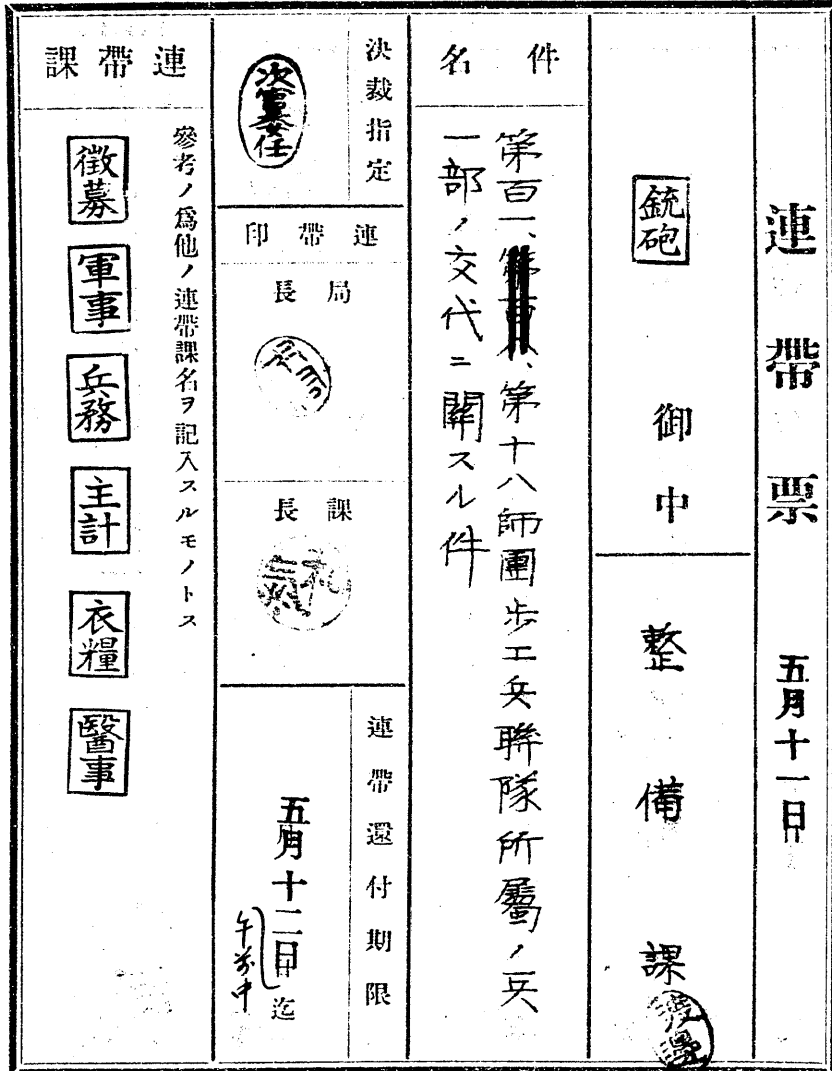 連帶票
五月十一日
銃砲
御中
整備課
渡邊
件名
第百一、
、第十八師團歩工兵聯隊所屬ノ兵
一部ノ交代ニ關スル件
決裁指定
次官委任
連帶印
局長
課長
連帶還付期限
五月十二日迄
午前中
連帶課
參考ノ爲他ノ連帶課名ヲ記入スルモノトス
徴募
軍事
兵務
主計
衣糧
醫事